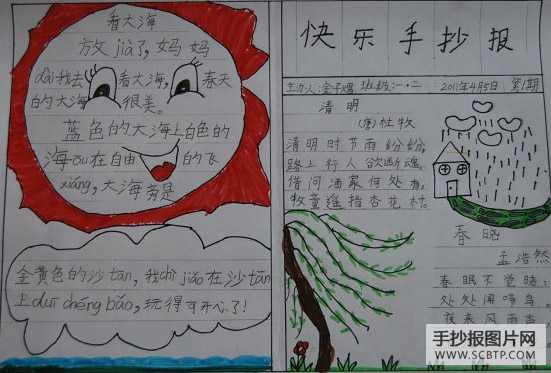 看大海
放jià了，妈妈
dài我去看大海，春天
的大海很美。
蓝色的大海上白色的
海ōu在自由的飞
xiáng，大海旁是
金黄色的沙tān，我chì jiǎo在沙tān
上duī chéng bǎo，玩得可开心了！
快乐手抄报
主办人：金子熠 班级：一·二 2011年4月5日 第1期
清明
(唐)杜牧
清明时节雨纷纷，
路上行人欲断魂。
借问酒家何处有，
牧童遥指杏花村。
春晓
孟浩然
春眠不觉晓，
处处闻啼鸟。
夜来风雨声
手抄报图片网
WWW.SCBTP.COM